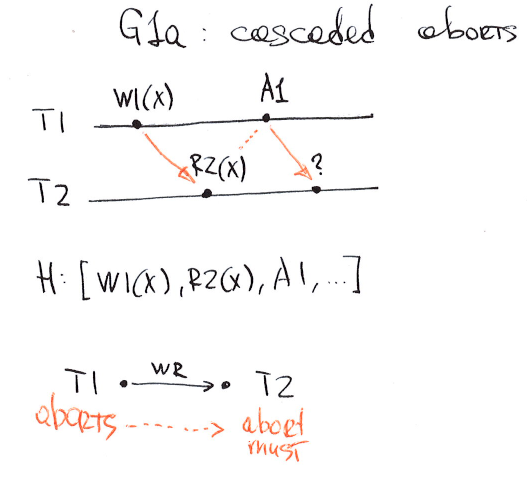 G1a : cascaded aborts
W1(x) A1
T1
R2(x) ?
T2
H: [W1(x), R2(x), A1, ...]
T1 WR T2
aborts abort
must